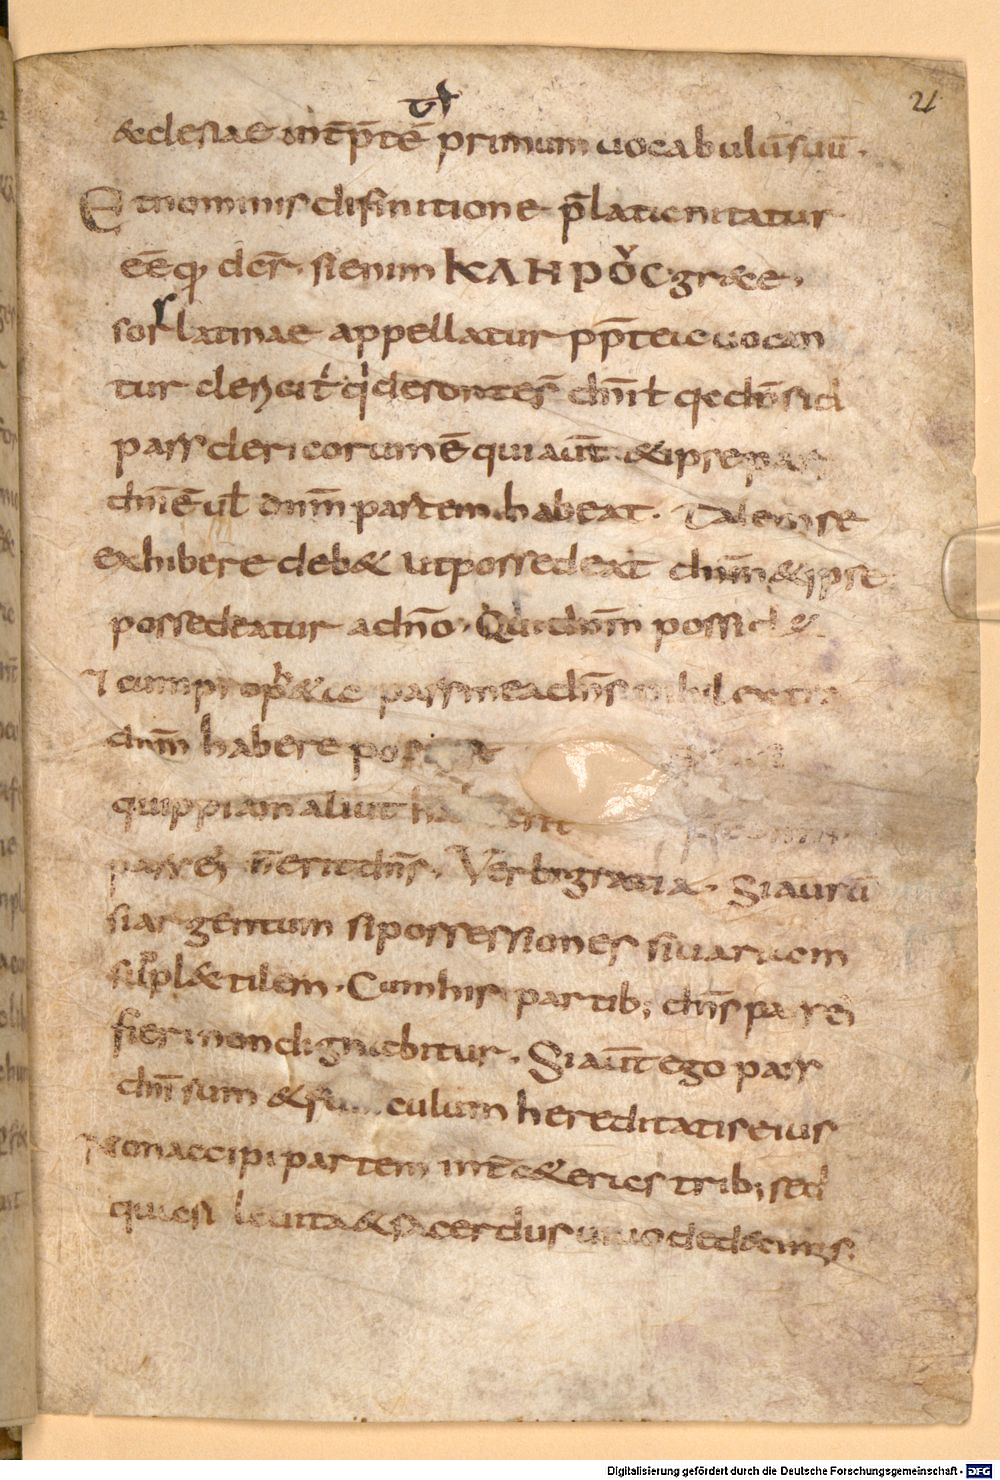 21
&clesiae int̄p̄tē primum uocabulū suū ·
Et nominis difinitione p̄latic nitatur
eēq; dcr̄ · si enim ΚΛΗΡΟC grece ·
sors latinae appellatur pp̄teic uocan
tur clerici t̄ q̇ de sorte s̄ dn̄i ł q̇ dn̄s id
pars clericorum ē qui aūt &ipse pars
dn̄i ē uł dnm̄ partem habeat · Talem se
exhibere deb& ut possedeat dnm̄ &ipse
possedeatur a dn̄o · Qui dnm̄ possid&
pars mea dn̄s nihil extra
dnm̄ habere
quippiam aliut
pars ei' n̄ erit dn̄s · Verbi gratia · Si aurū
si argentum si possessiones si uariem
supl&tilem · Cum his partib; dn̄s pars ei'
fieri non dignabitur · Si aūt ego pars
dn̄i sum & culum hereditatis eius
Non accipi partem int̄ c&eras trib; sed
quasi leuita & sacerdus uiuo de decimis ·
Digitalisierung gefördert durch die Deutsche Forschungsgemeinschaft - DFG